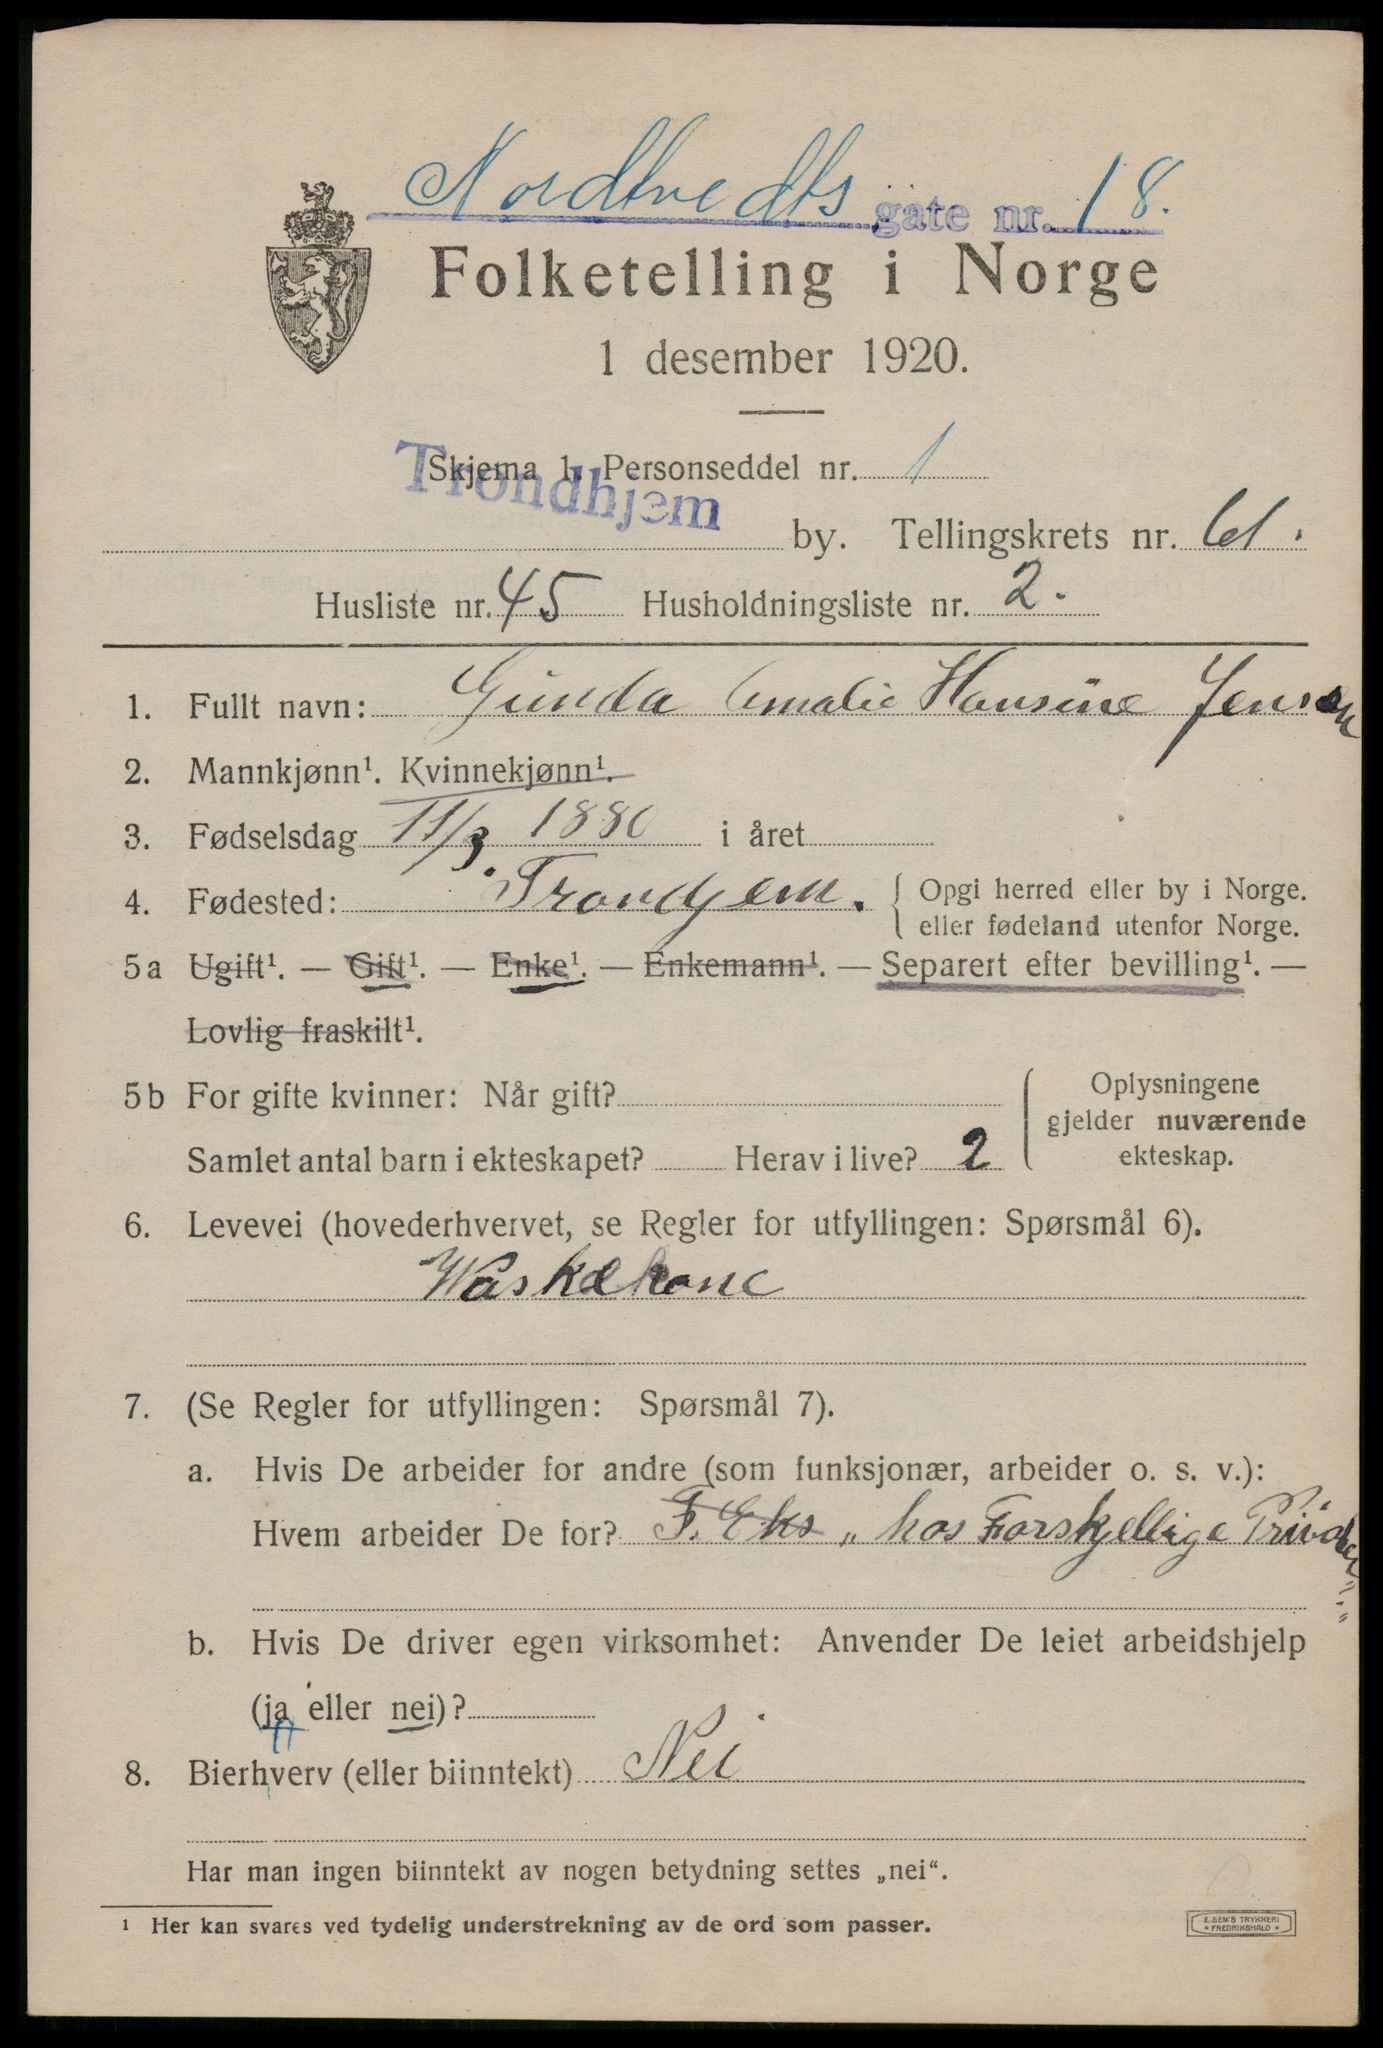 Nordtvedts gate nr. 18.
Folketelling i Norge
1 desember 1920.
Skjema 1. Personseddel nr. 1
Trondhjem by. Tellingskrets nr. 61.
Husliste nr. 45 Husholdningsliste nr. 2.
1. Fullt navn: Gunda Amalie Hansine Jensen
2. Mannkjønn¹. Kvinnekjønn¹.
3. Fødselsdag 11/3. 1880 i året
4. Fødested: Trondjem. { Opgi herred eller by i Norge.
eller fødeland utenfor Norge.
5 a Ugift¹. — Gift¹. — Enke¹. — Enkemann¹. — Separert efter bevilling¹. —
Lovlig fraskilt¹.
5 b For gifte kvinner: Når gift?
Samlet antal barn i ekteskapet? Herav i live? 2
Oplysningene
gjelder nuværende
ekteskap.
6. Levevei (hovederhvervet, se Regler for utfyllingen: Spørsmål 6).
Waskekone
7. (Se Regler for utfyllingen: Spørsmål 7).
a. Hvis De arbeider for andre (som funksjonær, arbeider o. s. v.):
Hvem arbeider De for? F. Eks „ hos Forskjellige Privater
b. Hvis De driver egen virksomhet: Anvender De leiet arbeidshjelp
(ja eller nei)?
8. Bierhverv (eller biinntekt) Nei
Har man ingen biinntekt av nogen betydning settes „nei“.
¹ Her kan svares ved tydelig understrekning av de ord som passer.
E. SEM'S TRYKKERI
* FREDRIKSHALD *